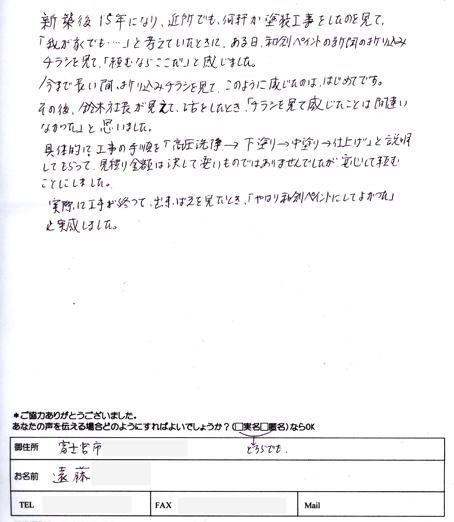 新築後15年になり、近所でも、何軒か塗装工事をしたのを見て、
「我が家でも…」と考えていたときに、ある日、和創ペイントの新聞の折り込み
チラシを見て、「頼むならここだ」と感じました。
今まで長い間、折り込みチラシを見て、このように感じたのは、はじめてです。
その後、鈴木社長が見えて、話をしたとき、「チラシを見て感じたことは間違い
なかった」と思いました。
具体的に、工事の手順を「高圧洗浄→下塗り→中塗り→仕上げ」と説明
してもらって、見積り金額は決して安いものではありませんでしたが、安心して頼む
ことにしました。
実際に工事が終って、出来ばえを見たとき、「やはり和創ペイントにしてよかった」
と実感しました。
*ご協力ありがとうございました。
あなたの声を伝える場合どのようにすればよいでしょうか？(□実名□匿名)ならOK
どちらでも。
御住所 富士宮市
お名前 遠藤
TEL FAX Mail